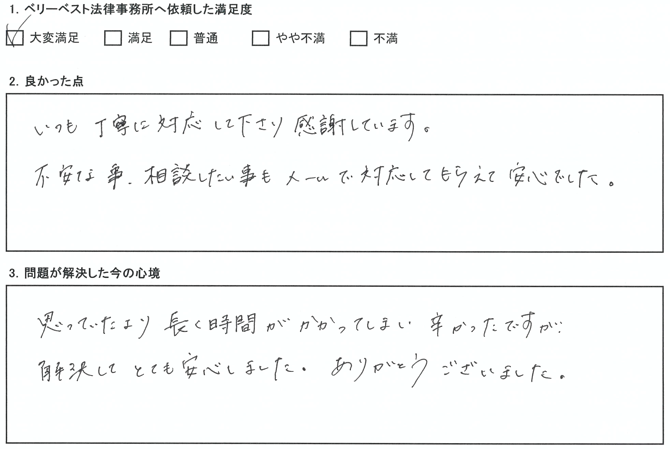 1. ベリーベスト法律事務所へ依頼した満足度
☑ 大変満足 □ 満足 □ 普通 □ やや不満 □ 不満
2. 良かった点
いつも丁寧に対応して下さり感謝しています。
不安な事、相談したい事もメールで対応してもらえて安心でした。
3. 問題が解決した今の心境
思っていたより長く時間がかかってしまい辛かったですが
解決してとても安心しました。ありがとうございました。